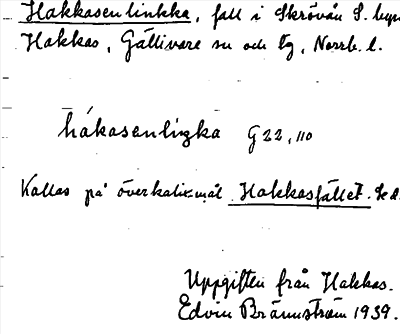 Hakkasenlinkka, fall i Skrövån S. byn
Hakkas, Gällivare sn och tg, Norrb. l.
hákasenliŋka G 22, 110
Kallas på överkalixmål Hakkasfället. Se d.
Uppgiften från Hakkas.
Edvin Brännström 1939.